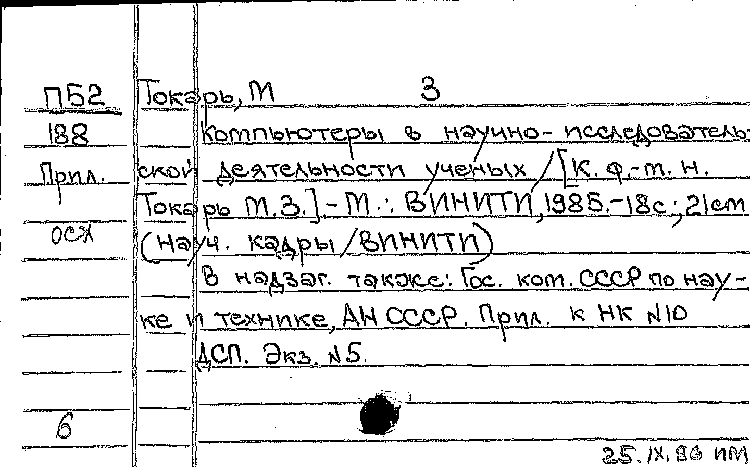 П52 Токарь, М З
188 Компьютеры в научно-исследователь-
Прил. ской деятельности ученых / [К. ф.-т. н.
Токарь М.З.] - М.: ВИНИТИ, 1985. - 18с.; 21см
осж (Науч. кадры / ВИНИТИ)
В надзаг. также: Гос. ком. СССР по нау-
ке и технике, АН СССР. Прил. к НК №10
ДСП. Экз. №5.
6
25.IX.86 ПМ